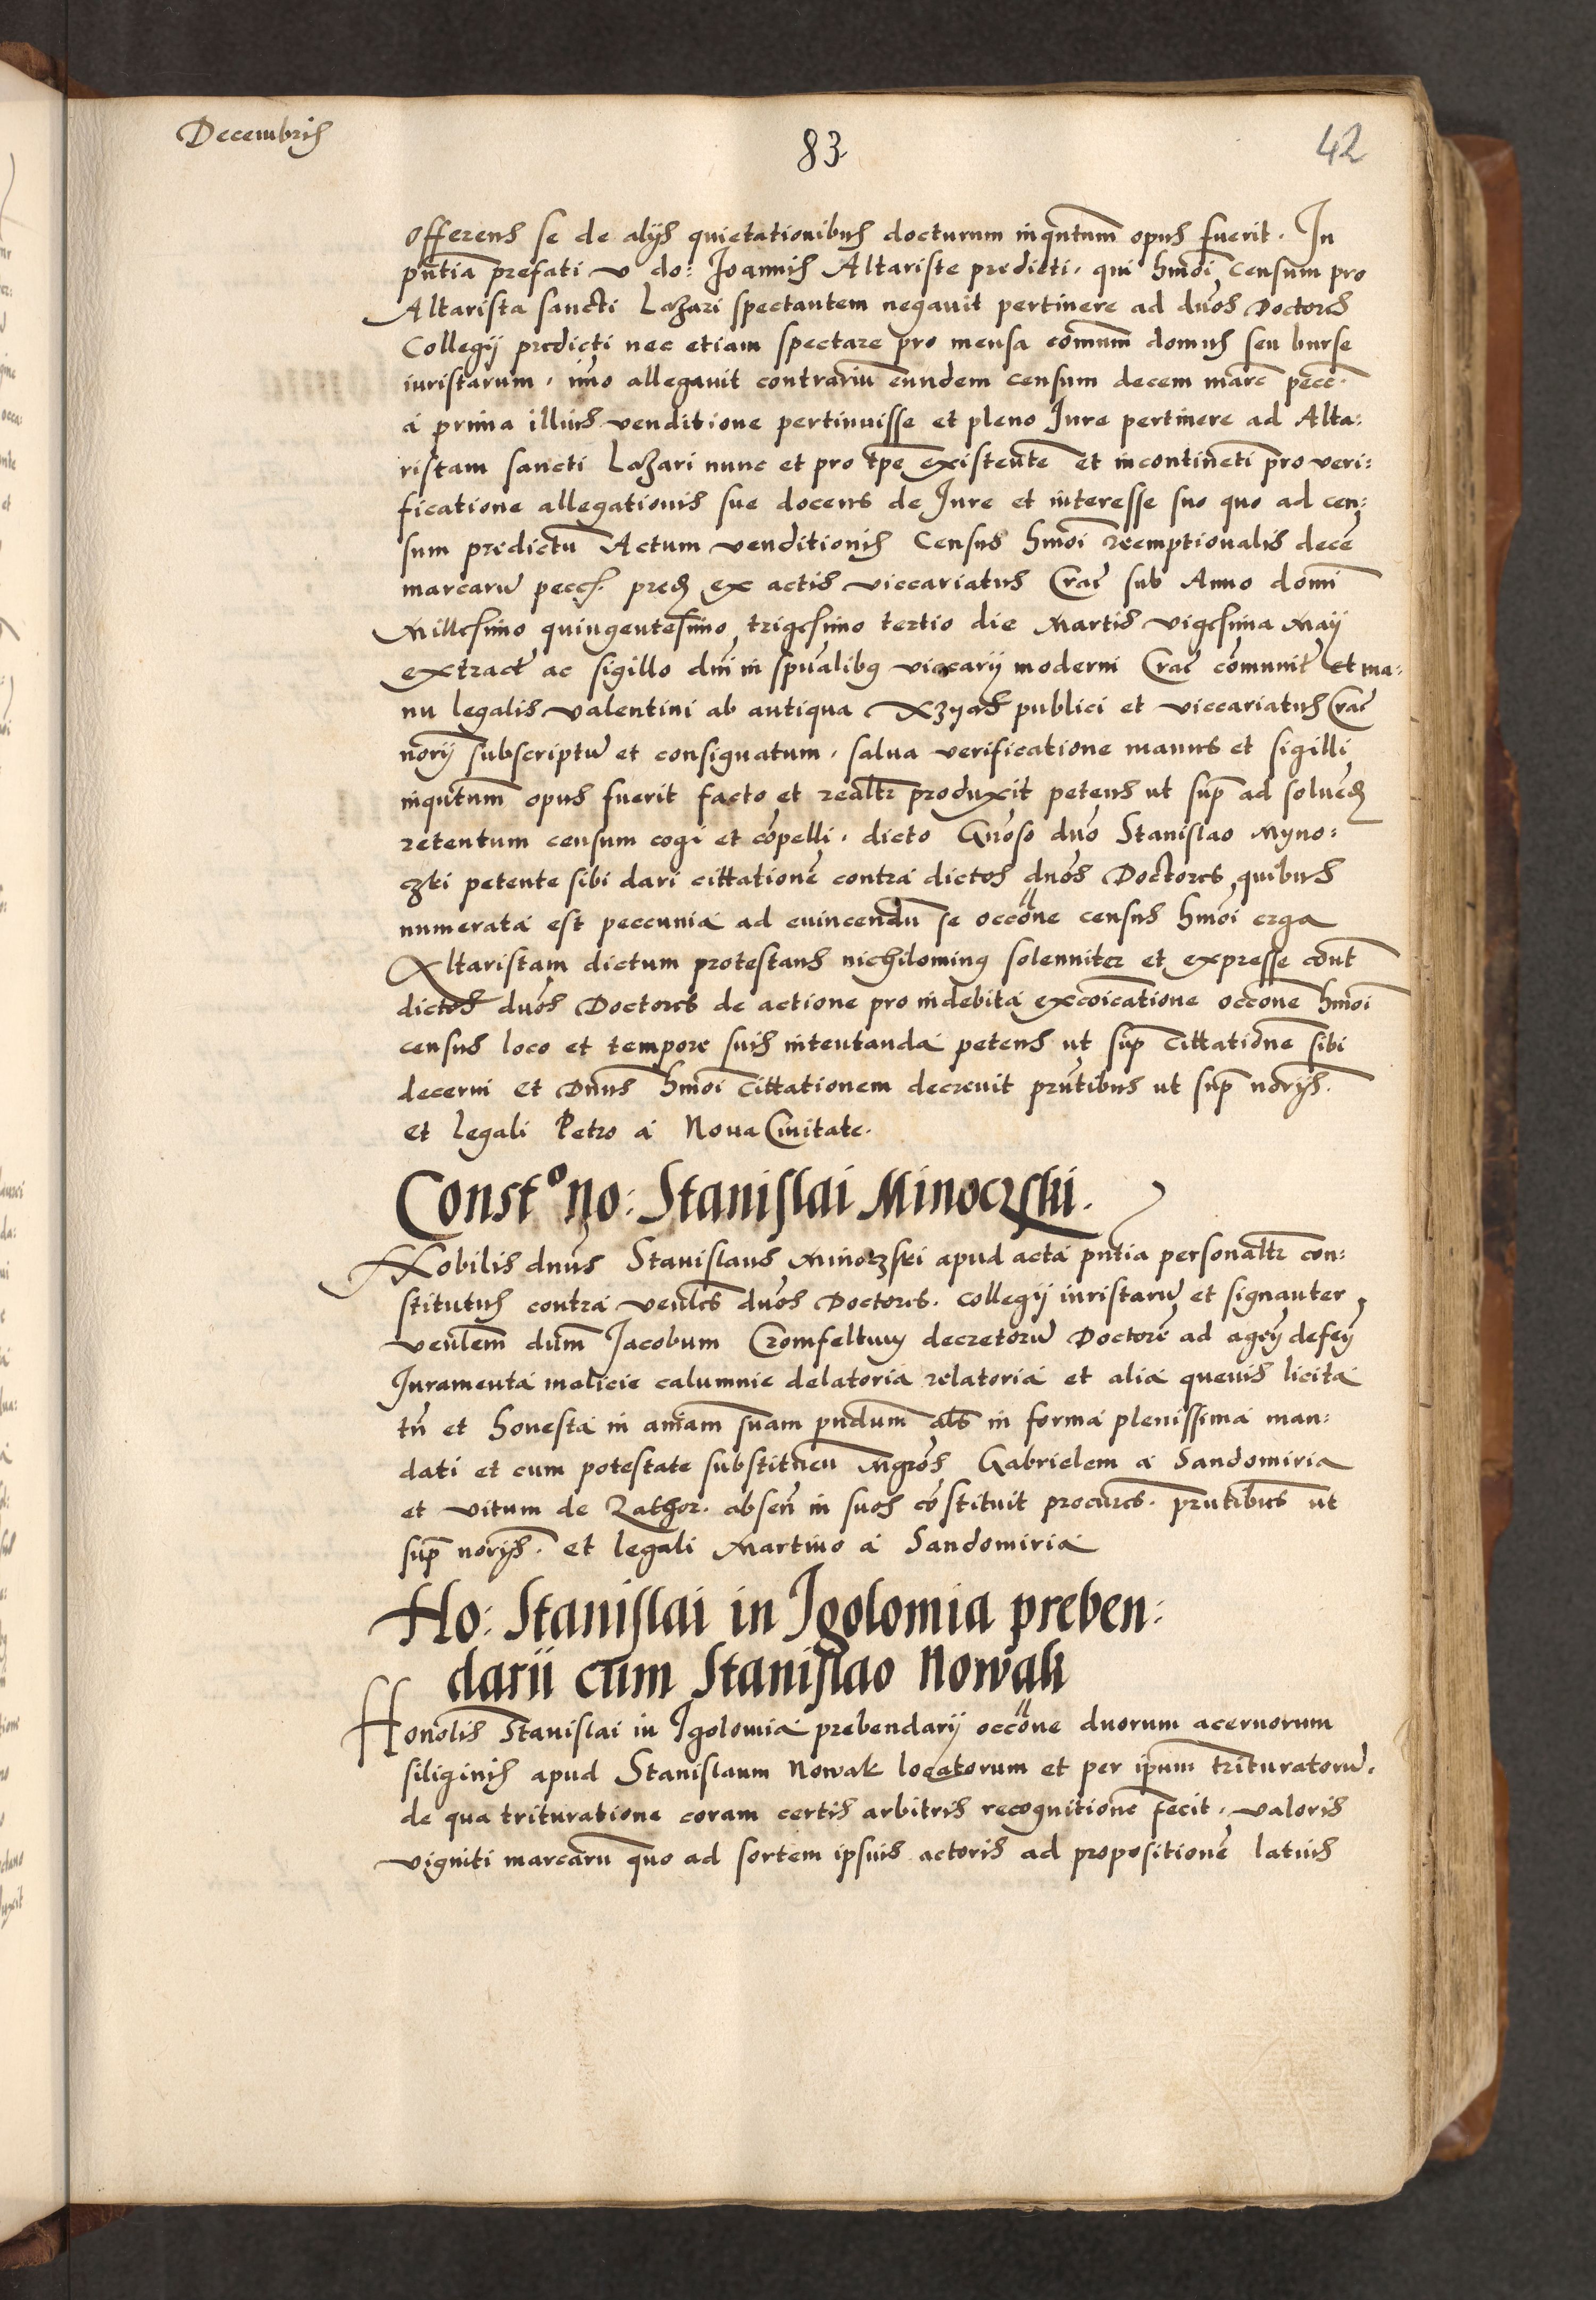 Decembris
83
42
offerens se de alijs quietationibus docturum inqntum opus fuerit. In
pntia prefati v do: Joannis Altariste predicti, qui hmoi censum pro
Altarista sancti Lazari spectantem negavit pertinere ad dnos Doctores
Collegij predicti nec etiam spectare pro mensa comuni domus seu burse
iuristarum, imo allegavit contrariu eundem censum decem marc pecc.
a prima illius venditione pertinuisse et pleno Jure pertinere ad Alta:
ristam sancti Lazari nunc et pro tpe existente et incontineti pro veri:
ficatione allegationis sue docens de Jure et interesse suo quo ad cen:
sum predictu Actum venditionis Census hmoi reemptionalis dece
marcaru pecc. pred ex actis viccariatus Crac sub Anno domi
Millesimo quingentesimo trigesimo tertio die Martis vigesima Maij
extract ac sigillo dni in spualibus viccarij moderni Crac comunit et ma:
nu legalis valentini ab antiqua publici et viccariatus Crac
norij subscriptu et consignatum, salva verificatione manus et sigilli
inqntum opus fuerit facto et realtr produxit petens ut sup ad solued
retentum censum cogi et copelli, dicto Gnoso dno Stanislao Myno:
czki petente sibi dari cittatione contra dictos dnos Doctores quibus
numerata est peccunia ad evincendu se occone census hmoi erga
Altaristam dictum protestans nichilominus solenniter et expresse cont
dictos dnos Doctores de actione pro indebita excoicatione occone hmoi
census loco et tempore suis intentanda petens ut sup cittatione sibi
decerni et Dnus hmoi cittationem decrevit pntibus ut sup norijs.
et legali Petro a Nova Civitate.
Constº no: Stanislai Minoczski.
Nobilis dnus Stanislaus Minoczski apud acta pntia personaltr con:
stitutus contra venles dnos Doctores. Collegij iuristaru et signanter
venlem dnm Jacobum Cromfeltum decretoru Doctore ad agen defen
Juramenta malicie calumnie delatoria relatoria et alia quevis licita
tn et honesta in aniam suam pndum als in forma plenissima man:
dati et cum potestate Mgros Gabrielem a Sandomiria
et vitum de Rathor. absen in suos constituit procures. pntibus ut
sup norijs. et legali Martino a Sandomiria
Ho: Stanislai in Igolomia preben:
darii cum Stanislao Nowak
Honolis Stanislai in Igolomia prebendarij occone duorum acervorum
siliginis apud Stanislaum Nowak locatorum et per ipsum trituratoru.
de qua trituratione coram certis arbitris recognitione fecit, valoris
viginti marcaru quo ad sortem ipsius actoris ad propositione latius